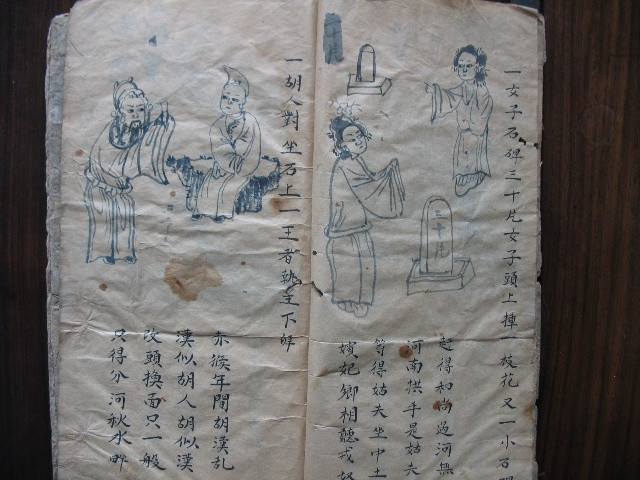 一女子石碑三十片女子頭上揷一枝花又一小石碑
三十片
起得和尚過河無
河南拱手是姑夫
等得姑夫坐中土
嬪妃卿相聽戎奴
一胡人對坐石上一王者執
赤猴年間胡漢乱
漢似胡人胡似漢
改頭換面只一般
只得分河秋水畔